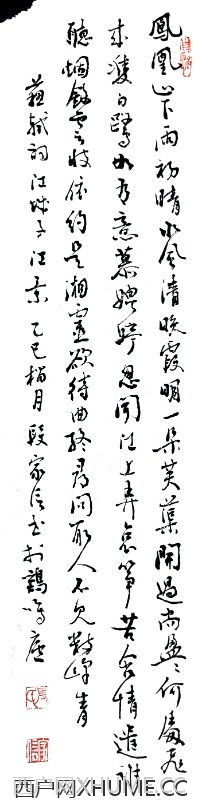 鳳凰山下雨初晴水風清晚霞明一朵芙蕖開過尚盈盈何處飛
來雙白鷺如有意慕娉婷忽聞江上弄哀箏苦含情遣誰
聽烟斂雲收依約是湘靈欲待曲終尋問取人不見數峰青
蘇軾詞江城子江景 乙巳 月段家 書於鷄鳴廬
西户网XHUME.CC